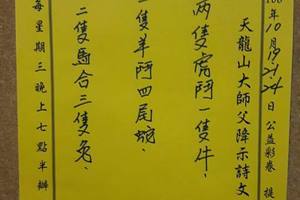 10月19.21.24日公益彩卷 提
天龍山大師父降示詩文
兩隻虎鬥一隻牛、
隻羊鬥四尾蛇、
二隻馬合三隻兔、
每星期三晚上七點半辦